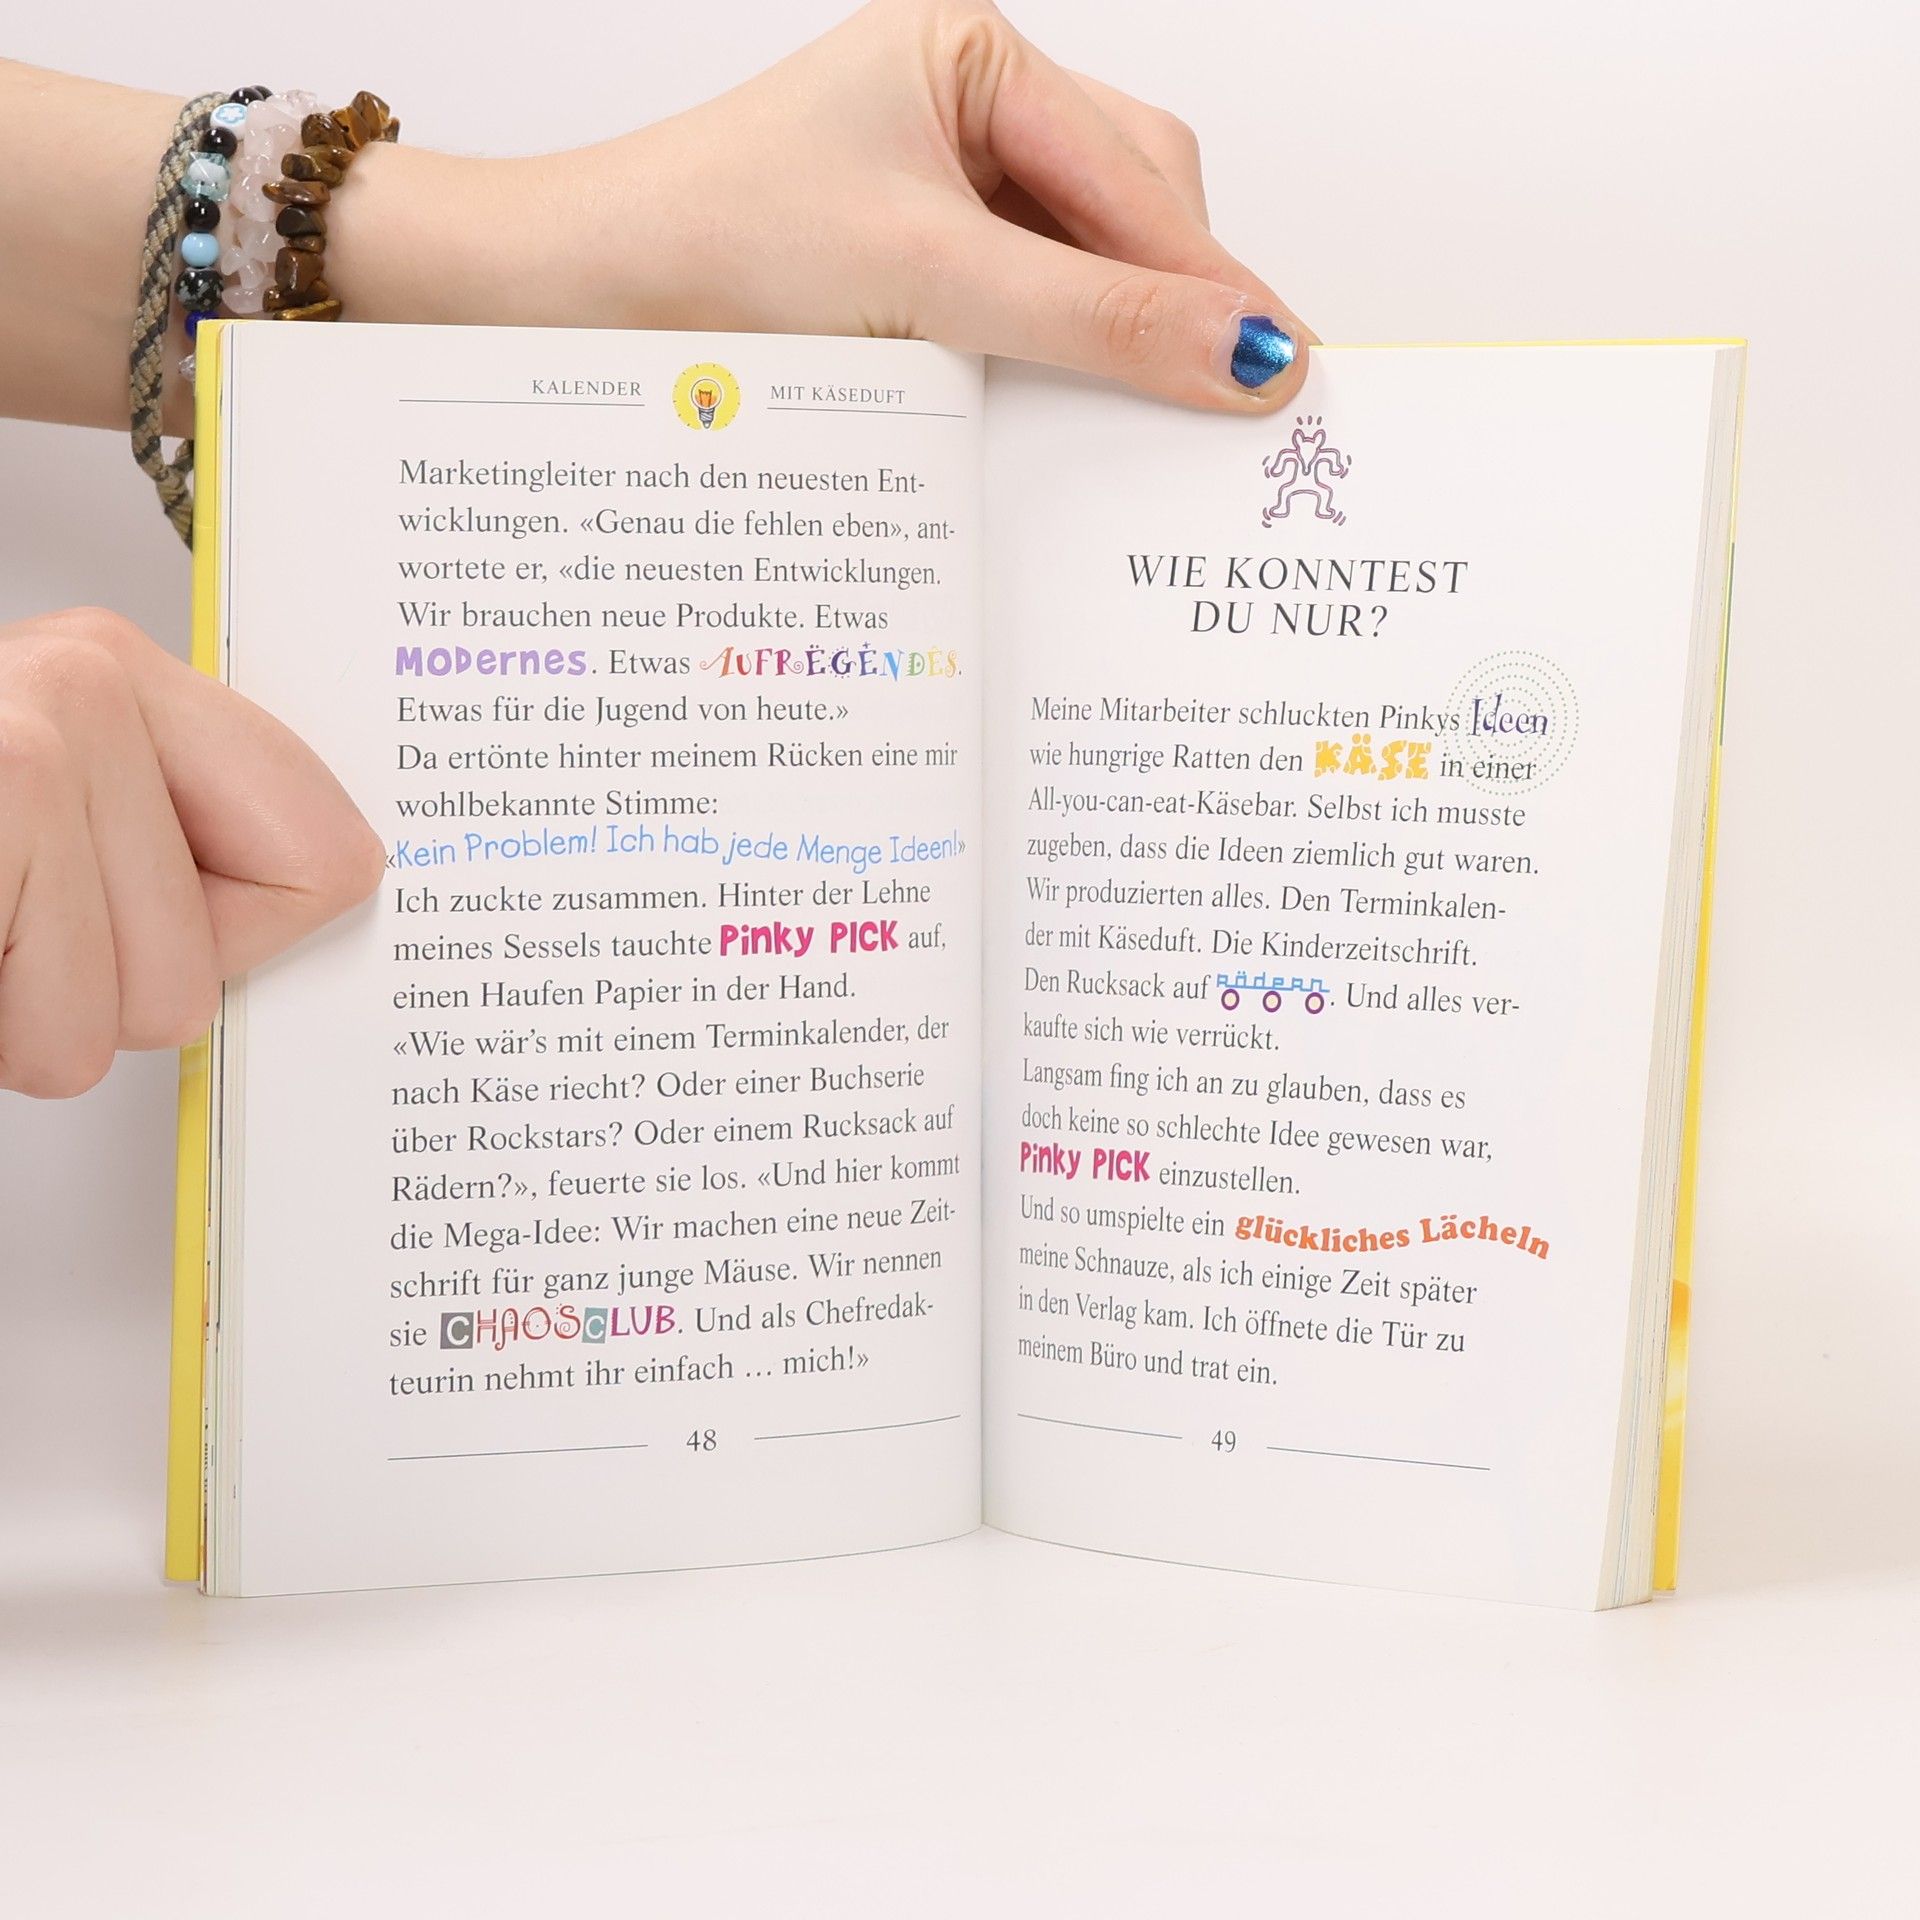 KALENDER MIT KÄSEDUFT
Marketingleiter nach den neuesten Ent-
wicklungen. «Genau die fehlen eben», ant-
wortete er, «die neuesten Entwicklungen.
Wir brauchen neue Produkte. Etwas
MODernes. Etwas AUFREGENDES.
Etwas für die Jugend von heute.»
Da ertönte hinter meinem Rücken eine mir
wohlbekannte Stimme:
«Kein Problem! Ich hab jede Menge Ideen!»
Ich zuckte zusammen. Hinter der Lehne
meines Sessels tauchte Pinky PICK auf,
einen Haufen Papier in der Hand.
«Wie wär’s mit einem Terminkalender, der
nach Käse riecht? Oder einer Buchserie
über Rockstars? Oder einem Rucksack auf
Rädern?», feuerte sie los. «Und hier kommt
die Mega-Idee: Wir machen eine neue Zeit-
schrift für ganz junge Mäuse. Wir nennen
sie CHAOSCLUB. Und als Chefredak-
teurin nehmt ihr einfach … mich!»
48
WIE KONNTEST
DU NUR?
Meine Mitarbeiter schluckten Pinkys Ideen
wie hungrige Ratten den KÄSE in einer
All-you-can-eat-Käsebar. Selbst ich musste
zugeben, dass die Ideen ziemlich gut waren.
Wir produzierten alles. Den Terminkalen-
der mit Käseduft. Die Kinderzeitschrift.
Den Rucksack auf Rädern. Und alles ver-
kaufte sich wie verrückt.
Langsam fing ich an zu glauben, dass es
doch keine so schlechte Idee gewesen war,
Pinky PICK einzustellen.
Und so umspielte ein glückliches Lächeln
meine Schnauze, als ich einige Zeit später
in den Verlag kam. Ich öffnete die Tür zu
meinem Büro und trat ein.
49